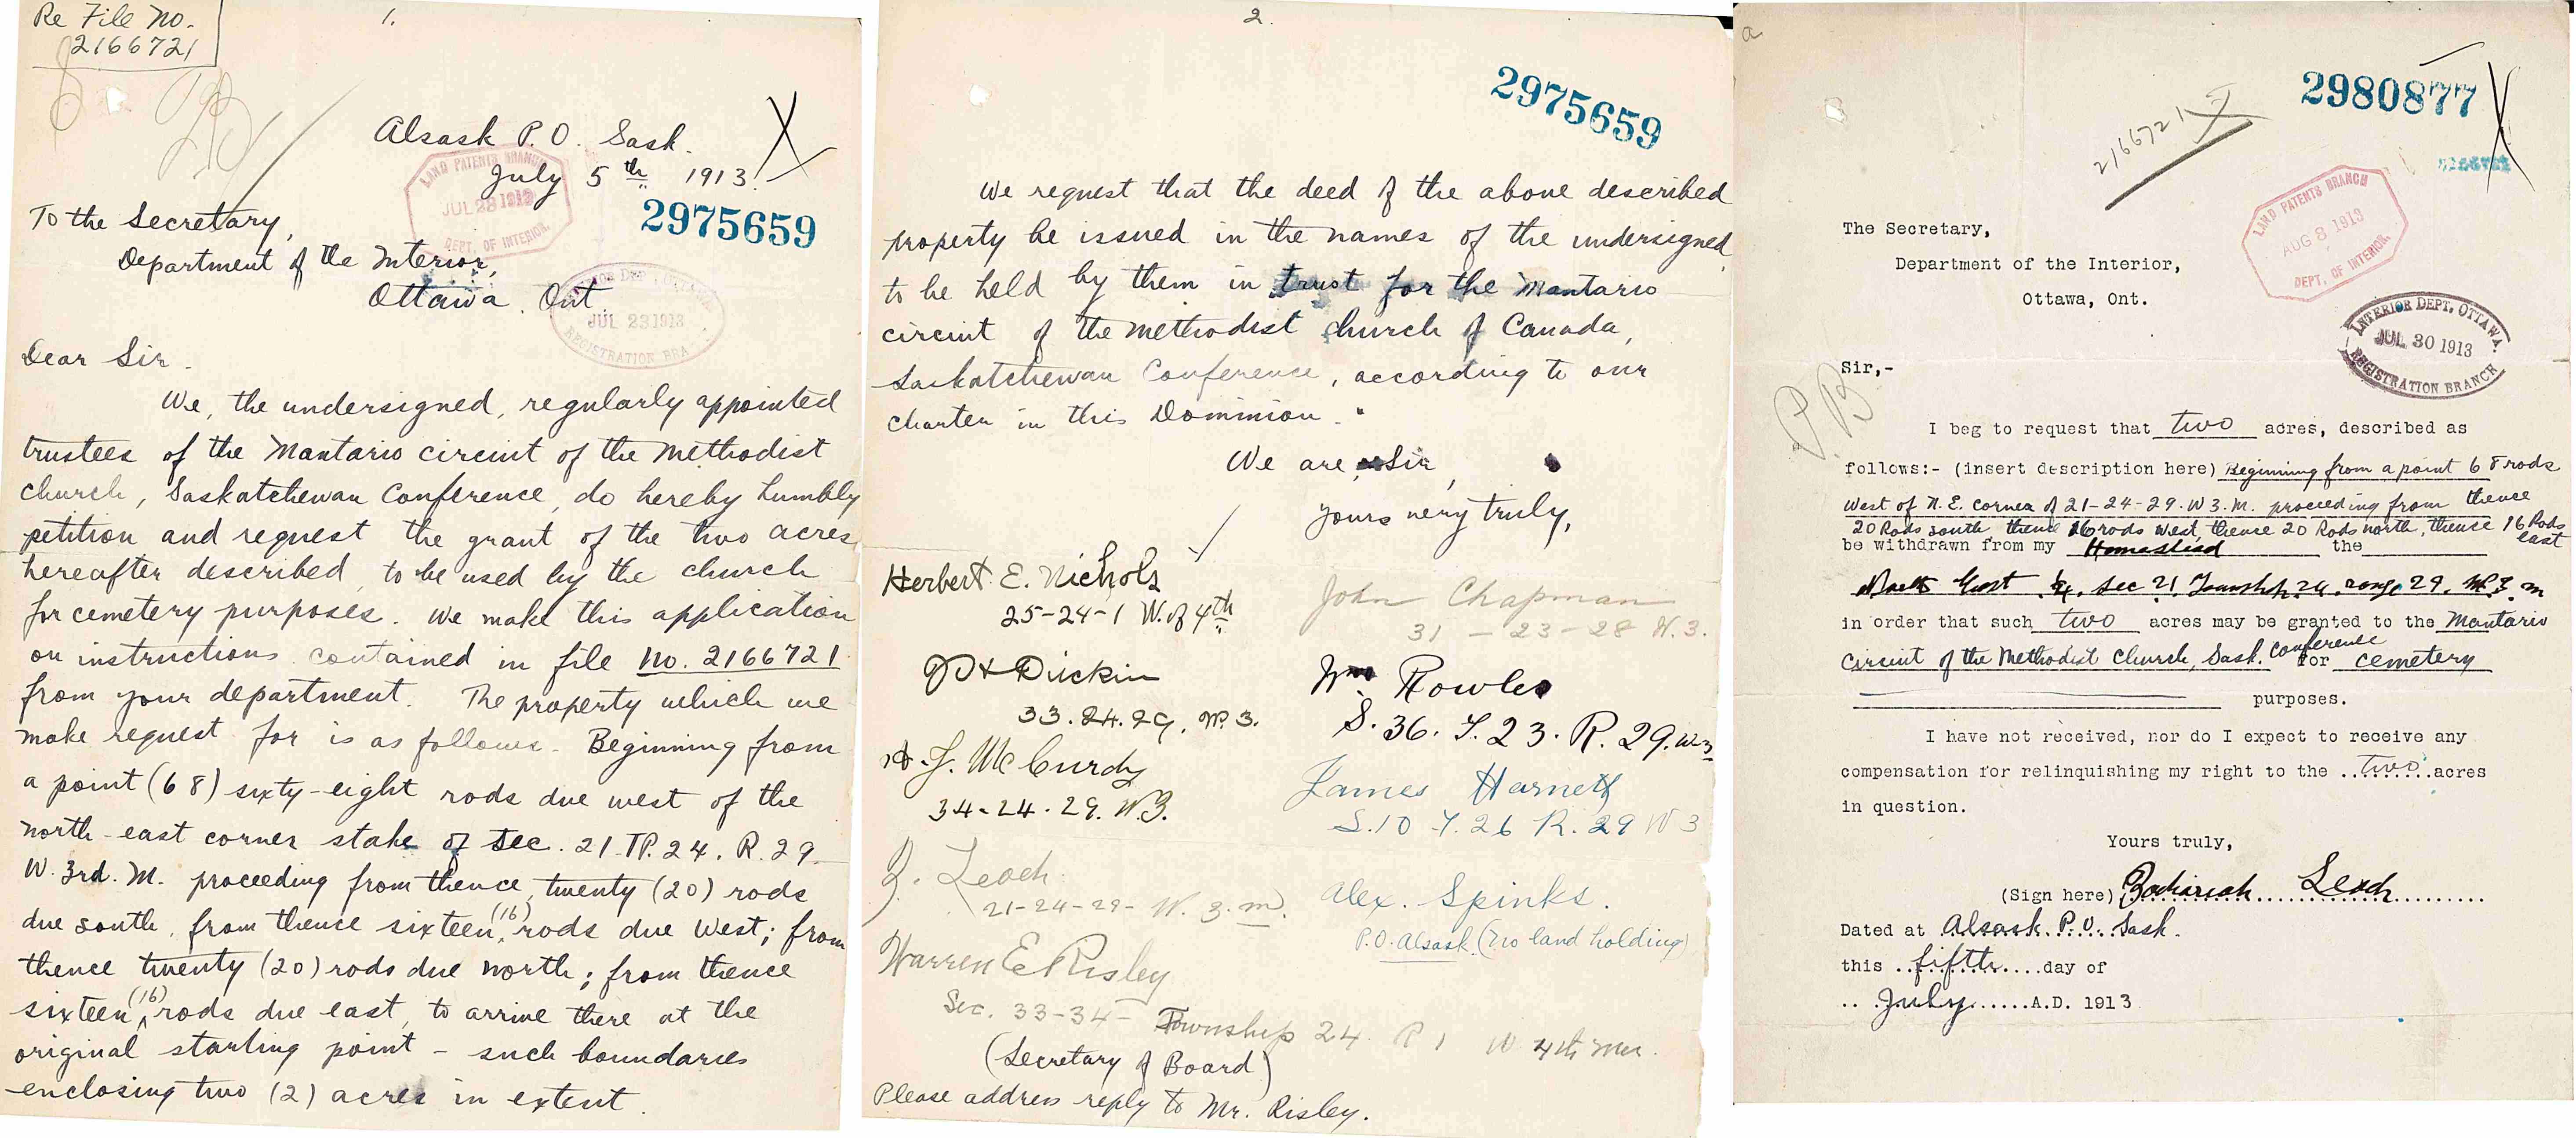 Re File No.
2166721
1.
Alsask P.O. Sask.
July 5th 1913.
LAND PATENTS BRANCH
JUL 28 1913
DEPT. OF INTERIOR
2975659
To the Secretary,
Department of the Interior,
Ottawa. Ont.
INTERIOR DEP. OTTAWA
JUL 23 1913
REGISTRATION BRA
Dear Sir.
We, the undersigned, regularly appointed
trustees of the Mantario circuit of the Methodist
church, Saskatchewan Conference, do hereby humbly
petition and request the grant of the two acres
hereafter described, to be used by the church
for cemetery purposes. We make this application
on instructions contained in file no. 2166721
from your department. The property which we
make request for is as follows. Beginning from
a point (68) sixty-eight rods due west of the
north-east corner stake of sec. 21. TP. 24. R. 29.
W. 3rd. M. proceeding from thence, twenty (20) rods
due south, from thence sixteen (16) rods due West; from
thence twenty (20) rods due north; from thence
sixteen (16) rods due east, to arrive there at the
original starting point - such boundaries
enclosing two (2) acres in extent.
2.
2975659
We request that the deed of the above described
property be issued in the names of the undersigned
to be held by them in trust for the Mantario
circuit of the Methodist church of Canada,
Saskatchewan Conference, according to our
charter in this Dominion.
We are Sir,
Yours very truly,
Herbert E. Nichols
25-24-1 W. of 4th
John Chapman
31-23-28 W. 3.
Dickin
33.24.29, W. 3.
Wm Rowles
S. 36. T. 23. R. 29. W3
J. McCurdy
34-24.29. W.3.
James Harnett
S.10 T.26 R.29 W3
Z. Leach
21-24-29- W. 3. m.
Alex. Spinks.
P.O. Alsask. (no land holding)
Warren E Risley
Sec. 33-34- Township 24. R 1 W 4th Mer.
(Secretary of Board)
Please address reply to Mr. Risley.
a
2980877
2166721
LAND PATENTS BRANCH
AUG 8 1913
DEPT. OF INTERIOR.
The Secretary,
Department of the Interior,
Ottawa, Ont.
INTERIOR DEPT, OTTAWA.
JUL 30 1913
REGISTRATION BRANCH
Sir,-
P.B
I beg to request that two acres, described as
follows:- (insert description here) Beginning from a point 68 rods
West of N.E. corner of 21-24-29. W 3. M. proceeding from thence
20 Rods south, thence 16 rods west, thence 20 Rods north, thence 16 Rods east
be withdrawn from my Homestead the
North East ¼. Sec 21 Township 24. range 29. W 3 m
in order that such two acres may be granted to the Mantario
Circuit of the Methodist Church, Sask. Conference for cemetery
purposes.
I have not received, nor do I expect to receive any
compensation for relinquishing my right to the two acres
in question.
Yours truly,
(Sign here) Zachariah Leach
Dated at Alsask. P.O. Sask.
this fifth day of
July A.D. 1913